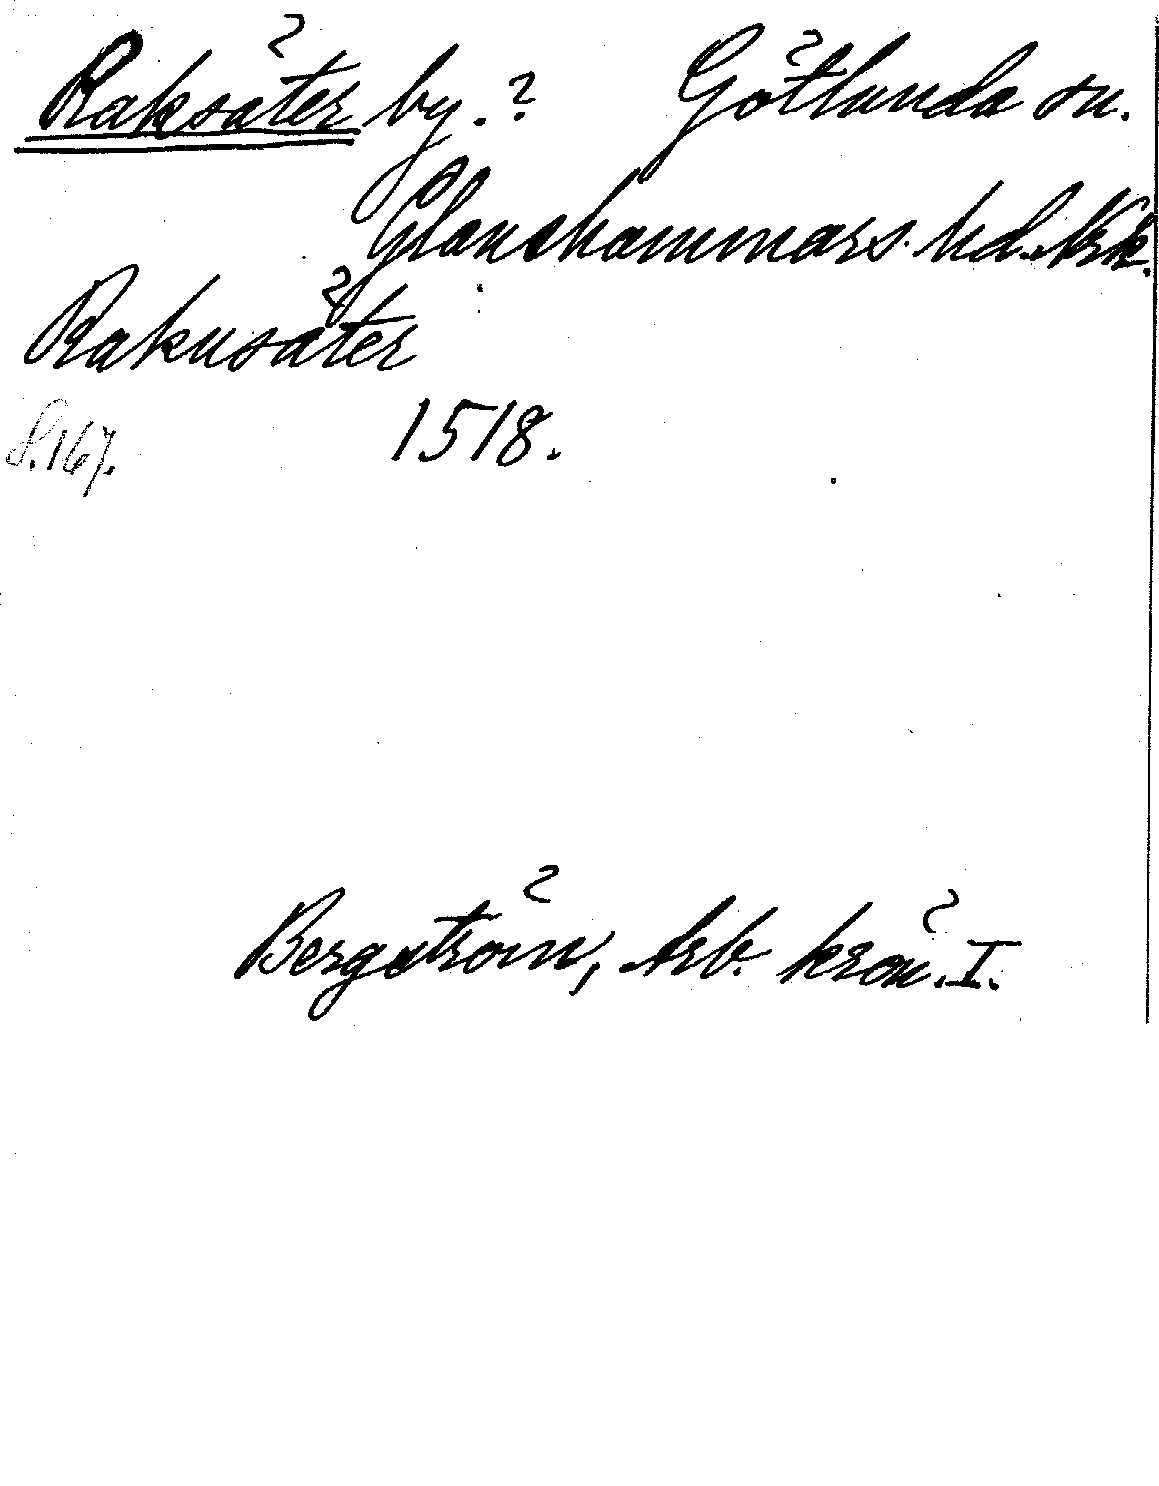 Raksäter by.? Götlunda sn.
Glanshammars hd. Nrk.
Raknsäter
S.167. 1518.
Bergström, Arb. krön. I.